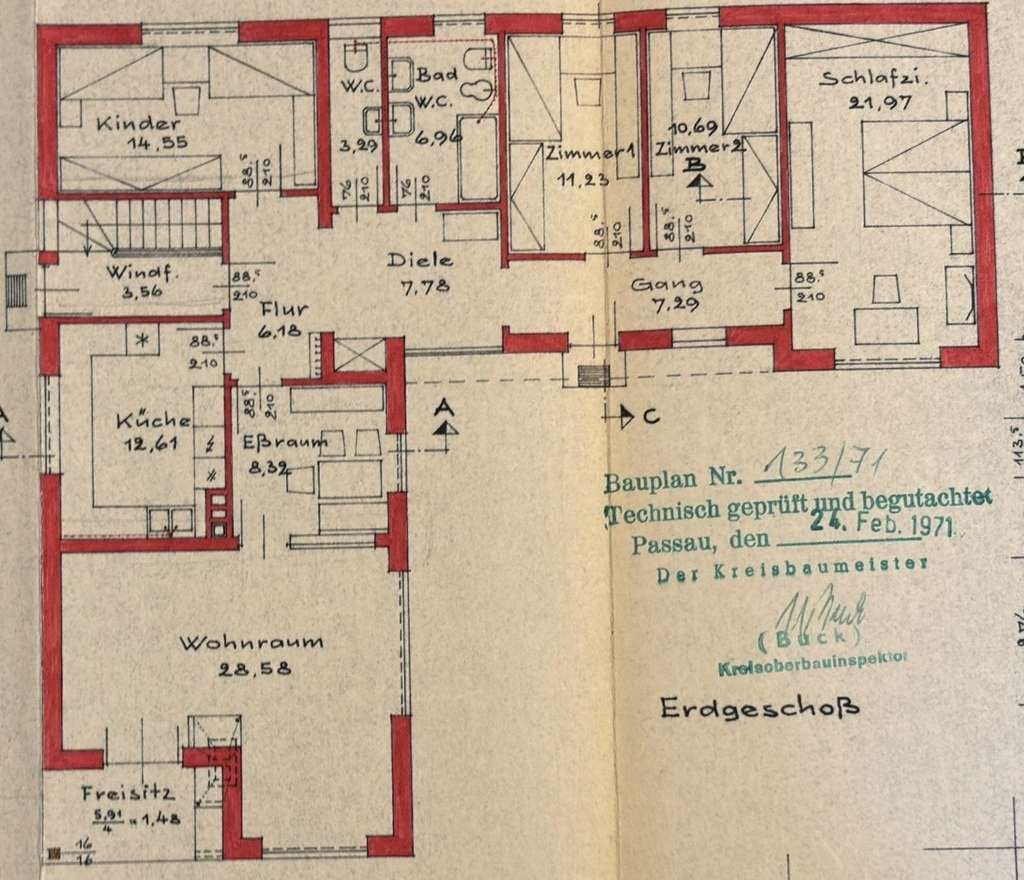 Kinder
14,55
88,5
210
W.C.
3,29
76
210
Bad
W.C.
6,96
76
210
Zimmer 1
11,23
88,5
210
10,69
Zimmer 2
B
88,5
210
Schlafzi.
21,97
Windf.
3,56
88,5
210
Flur
6,18
Diele
7,78
Gang
7,29
88,5
210
88,5
210
88,5
210
Küche
12,61
Eßraum
8,32
A
A
C
113,5
Bauplan Nr. 133/71
Technisch geprüft und begutachtet
Passau, den 24. Feb. 1971.
Der Kreisbaumeister
(Buck)
Kreisoberbauinspektor
Wohnraum
28,58
Erdgeschoß
Freisitz
5,91/4 = 1,48
16
16